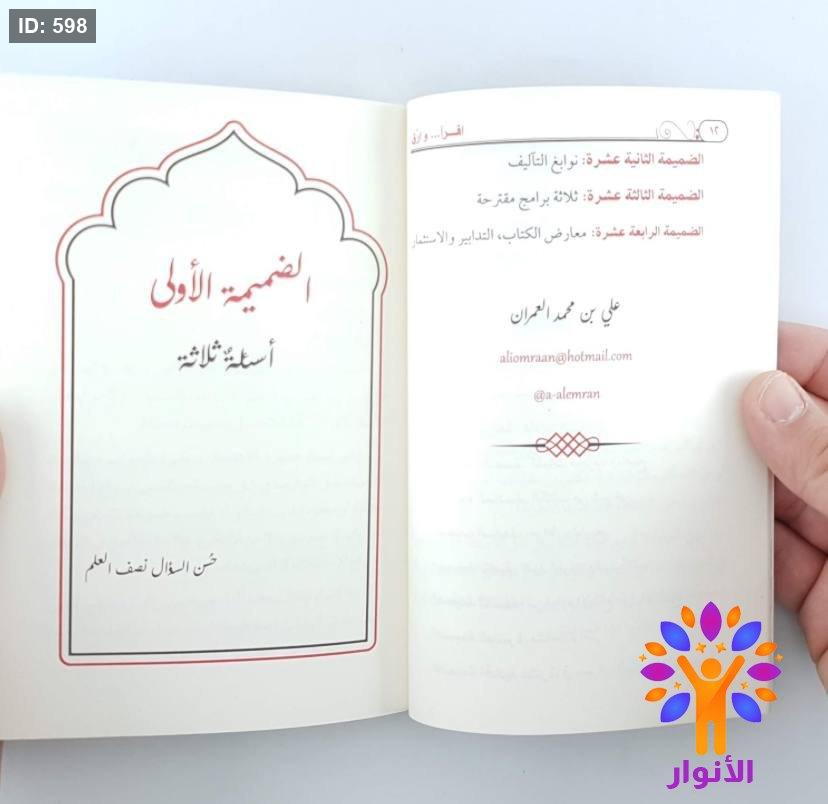 ID: 598
١٢
اقرأ... وارق
الضميمة الثانية عشرة: نوابغ التآليف
الضميمة الثالثة عشرة: ثلاثة برامج مقترحة
الضميمة الرابعة عشرة: معارض الكتاب، التدابير والاستثمار
علي بن محمد العمران
aliomraan@hotmail.com
@a-alemran
الضميمة الأولى
أسئلةٌ ثلاثة
حُسن السؤال نصف العلم
الأنوار